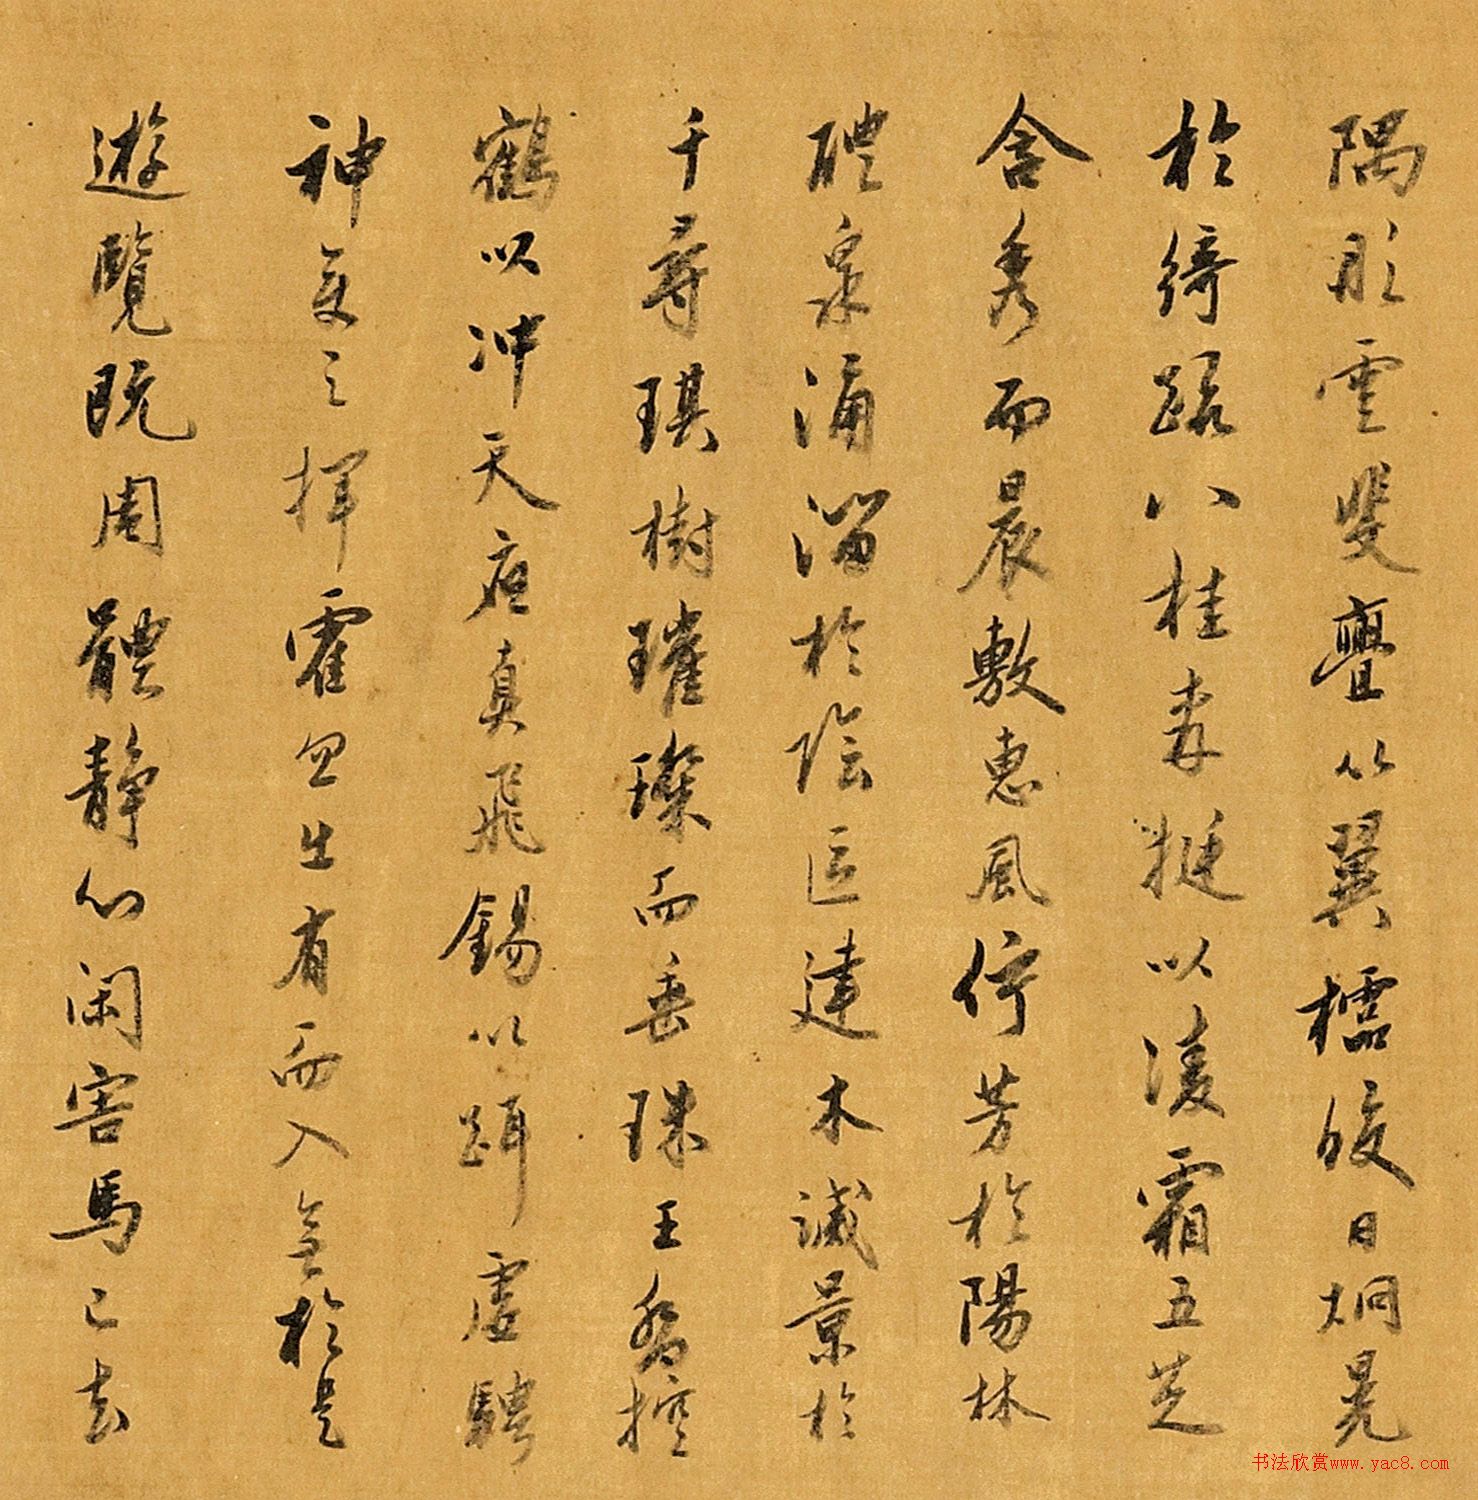 隅彤雲斐亹以翼櫺皎日炯晃
於綺疏八桂森挺以淩霜五芝
含秀而晨敷惠風佇芳於陽林
醴泉涌溜於陰渠建木滅景於
千尋琪樹璀璨而垂珠王喬控
鶴以冲天應真飛錫以躡虛騁
神變之揮霍忽出有而入無於是
遊覽既周體靜心閑害馬已去
书法欣赏www.yac8.com